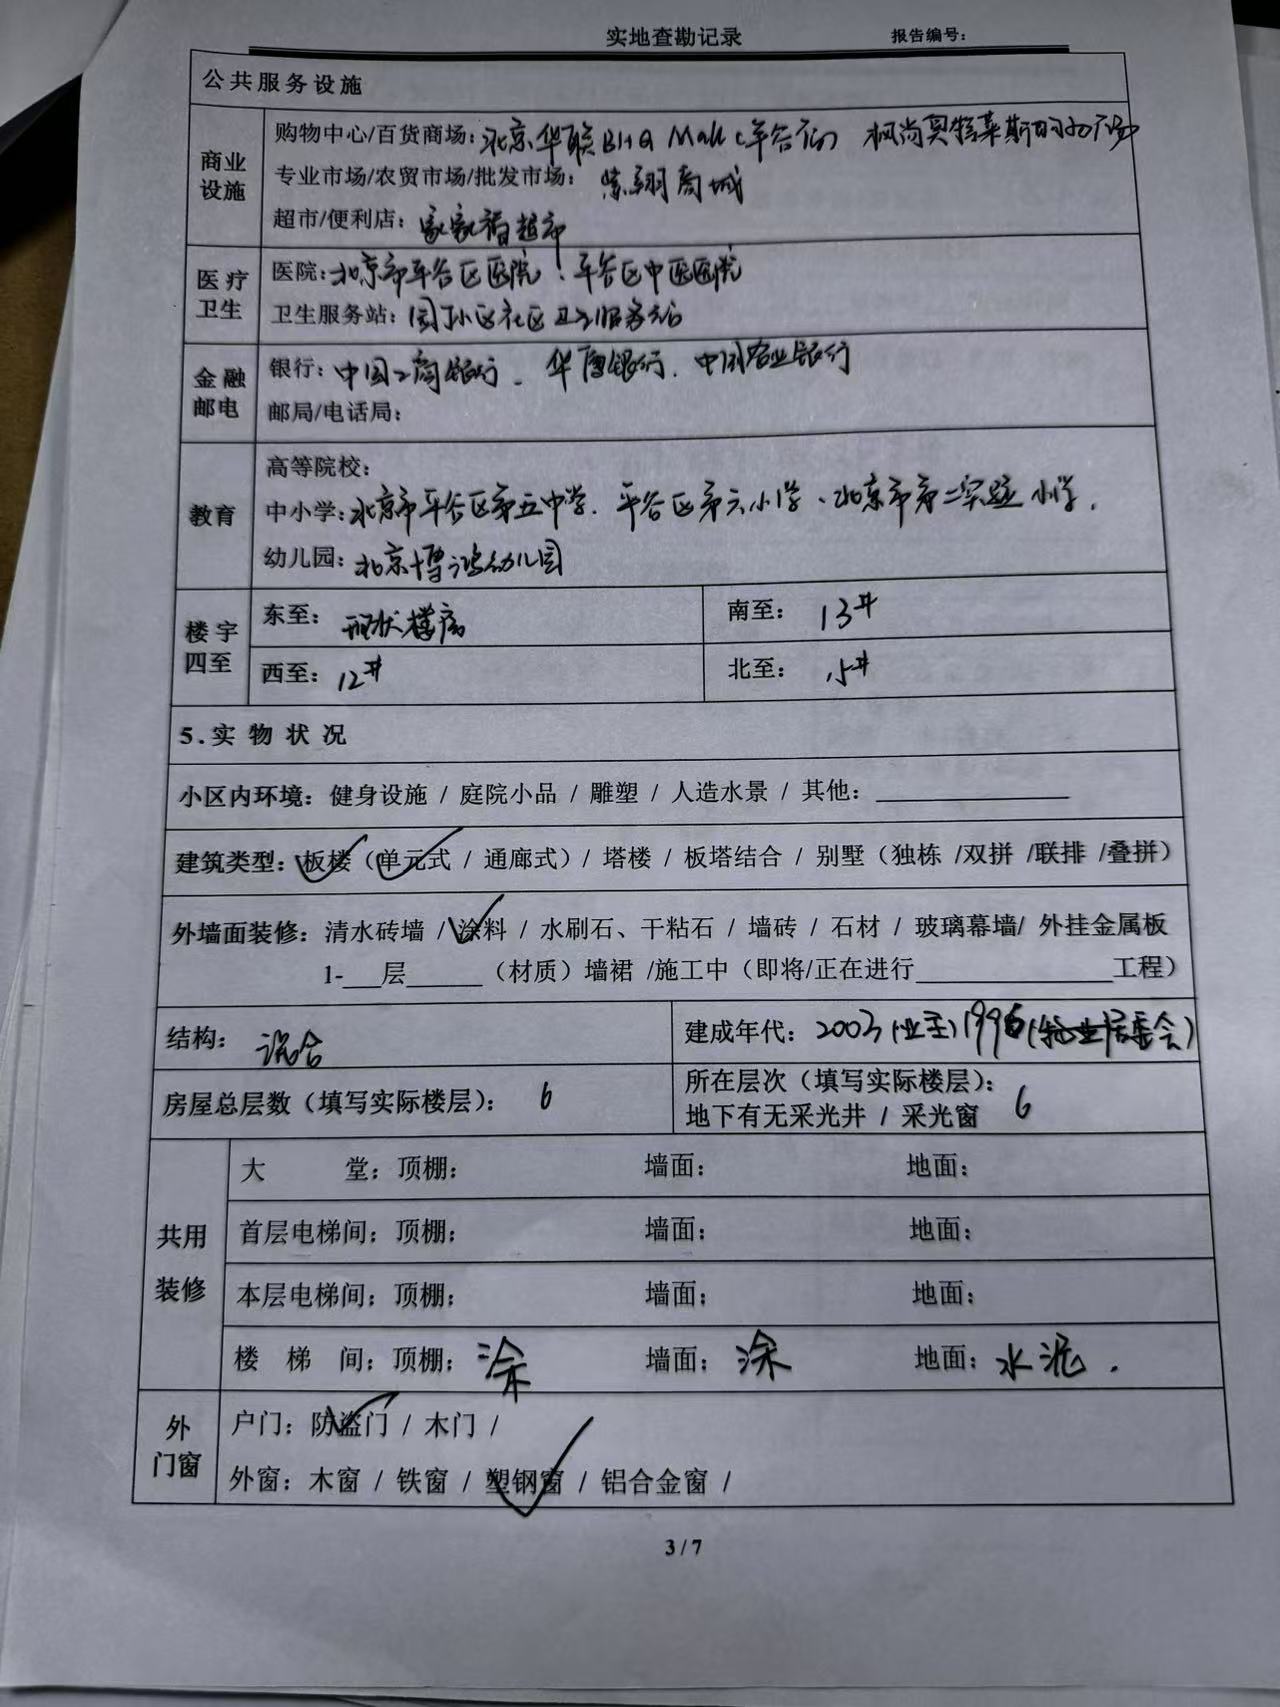 实地查勘记录 报告编号：
公共服务设施
商业设施
购物中心/百货商场：北京华联BHG Mall（平谷店） 枫尚奥特莱斯购物广场
专业市场/农贸市场/批发市场： 商城
超市/便利店：家家福超市
医疗卫生
医院：北京市平谷区医院、平谷区中医医院
卫生服务站： 小区社区卫生服务站
金融邮电
银行：中国工商银行、华夏银行、中国农业银行
邮局/电话局：
教育
高等院校：
中小学：北京市平谷区第五中学、平谷区第六小学、北京市第二实验小学、
幼儿园：北京博 幼儿园
楼宇四至
东至：现状楼房 南至：13#
西至：12# 北至：
5.实物状况
小区内环境：健身设施 / 庭院小品 / 雕塑 / 人造水景 / 其他：
建筑类型：板楼（单元式 / 通廊式）/ 塔楼 / 板塔结合 / 别墅（独栋 /双拼 /联排 /叠拼）
外墙面装修：清水砖墙 / 涂料 / 水刷石、干粘石 / 墙砖 / 石材 / 玻璃幕墙/ 外挂金属板
1-___层______（材质）墙裙 /施工中（即将/正在进行_______________工程）
结构：混合 建成年代：2003（业主）1996（物业居委会）
房屋总层数（填写实际楼层）：6 所在层次（填写实际楼层）：6
地下有无采光井 / 采光窗
共用装修
大堂：顶棚： 墙面： 地面：
首层电梯间：顶棚： 墙面： 地面：
本层电梯间：顶棚： 墙面： 地面：
楼梯间：顶棚：涂 墙面：涂 地面：水泥.
外门窗
户门：防盗门 / 木门 /
外窗：木窗 / 铁窗 / 塑钢窗 / 铝合金窗 /
3 / 7